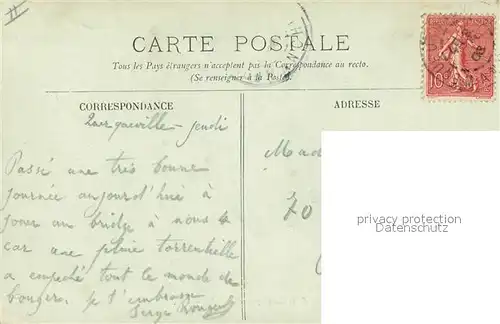 CARTE POSTALE
Tous les Pays étrangers n'acceptent pas la Correspondance au recto.
(Se renseigner à la Poste).
CORRESPONDANCE
ADRESSE
10
Querqueville - jeudi
Passé une très bonne
journée aujourd'hui à
jouer au bridge à nous 4
car une pluie torrentielle
a empêché tout le monde de
bouger. je t'embrasse
Serge
Mad
70
privacy protection
www.ansichtskarten-center.de